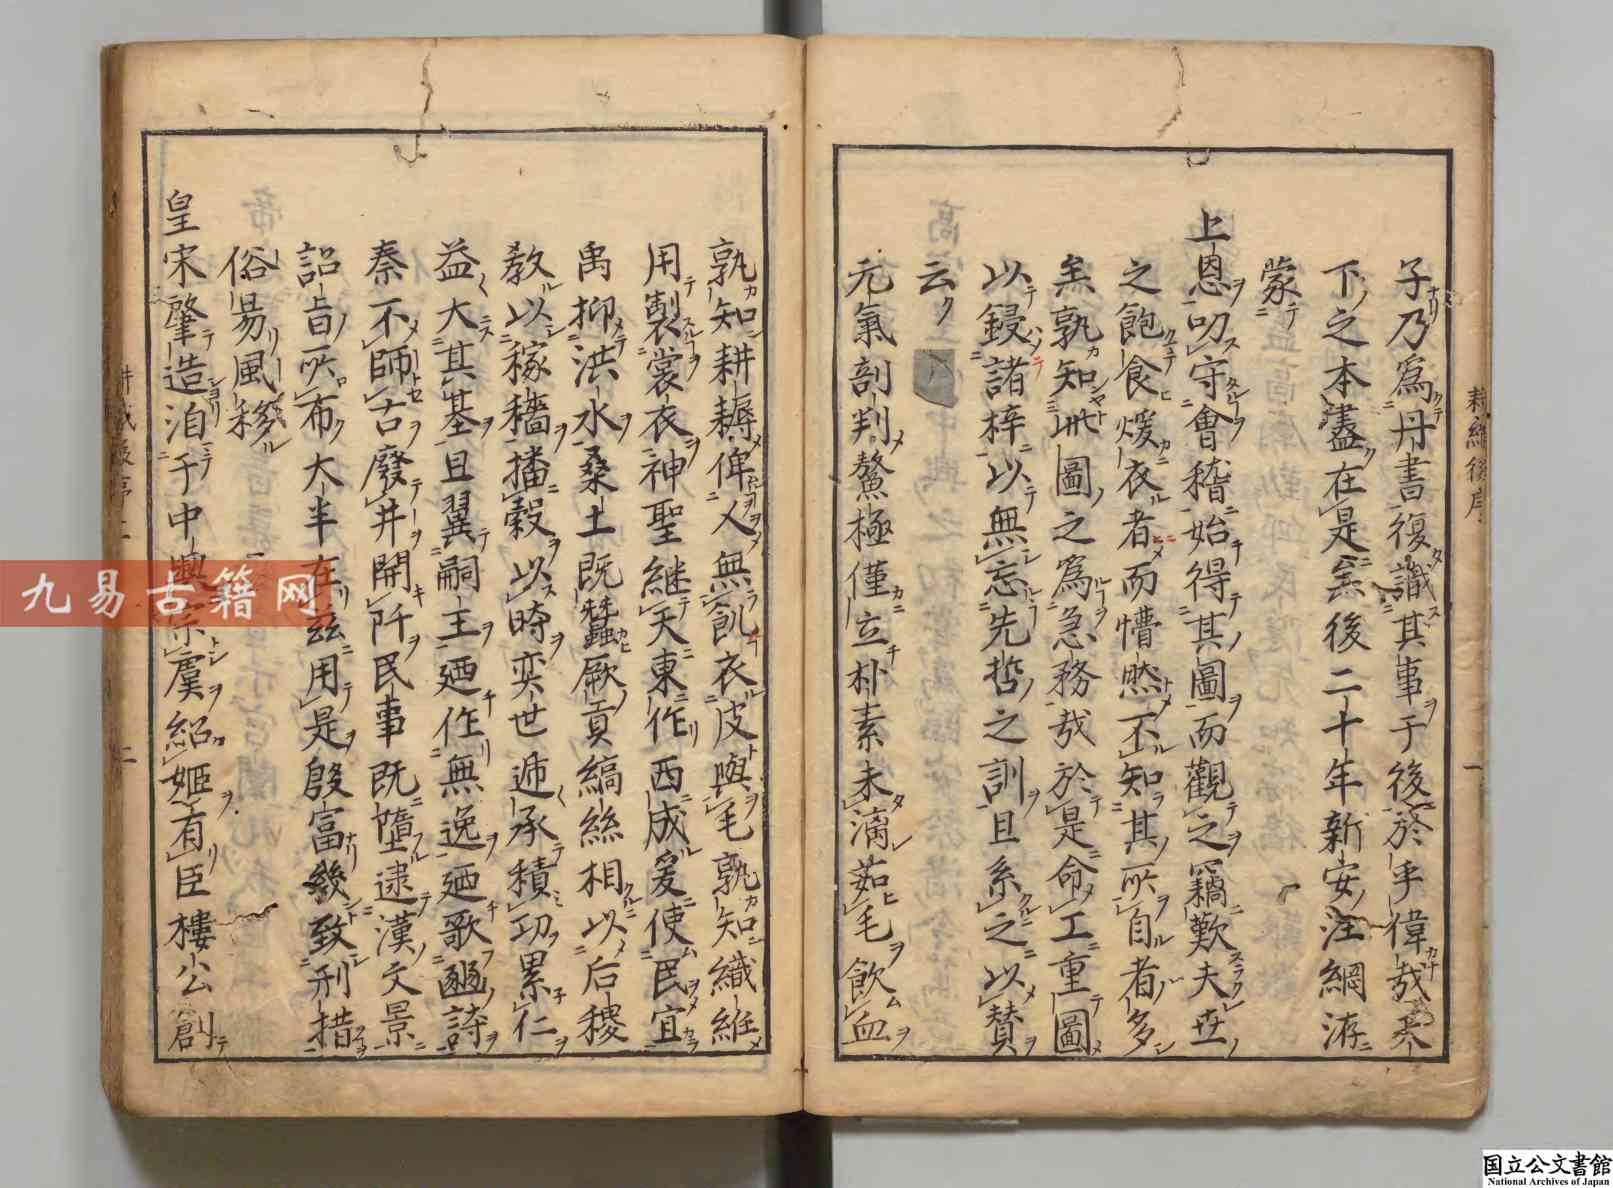 子乃為丹書復識其事于後於乎偉哉天
下之本盡在是矣後二十年新安汪綱洊
蒙
上恩叨守會稽始得其圖而觀之竊歎夫世
之飽食煖衣者而懵然不知其所自者多
矣孰知此圖之為急務哉於是命工重圖
以鋟諸梓以無忘先哲之訓且系之以贊
云
元氣剖判鰲極僅立朴素未漓茹毛飲血
孰知耕耨俾人無飢衣皮與毛孰知織維
用製裳衣神聖継天東作西成爰使民宜
禹抑洪水桑土既蠶厥貢縞絲相以后稷
教以稼穡播穀以時奕世逓承積功累仁
益大其基旦翼嗣王廼作無逸廼歌豳詩
秦不師古廢井開阡民事既墮逮漢文景
詔旨所布大半在兹用是殷富幾致刑措
俗易風移
皇宋肇造洎于中興宗虞紹姬有臣樓公創
耕織後序
一
二
九易古籍网
国立公文書館
National Archives of Japan